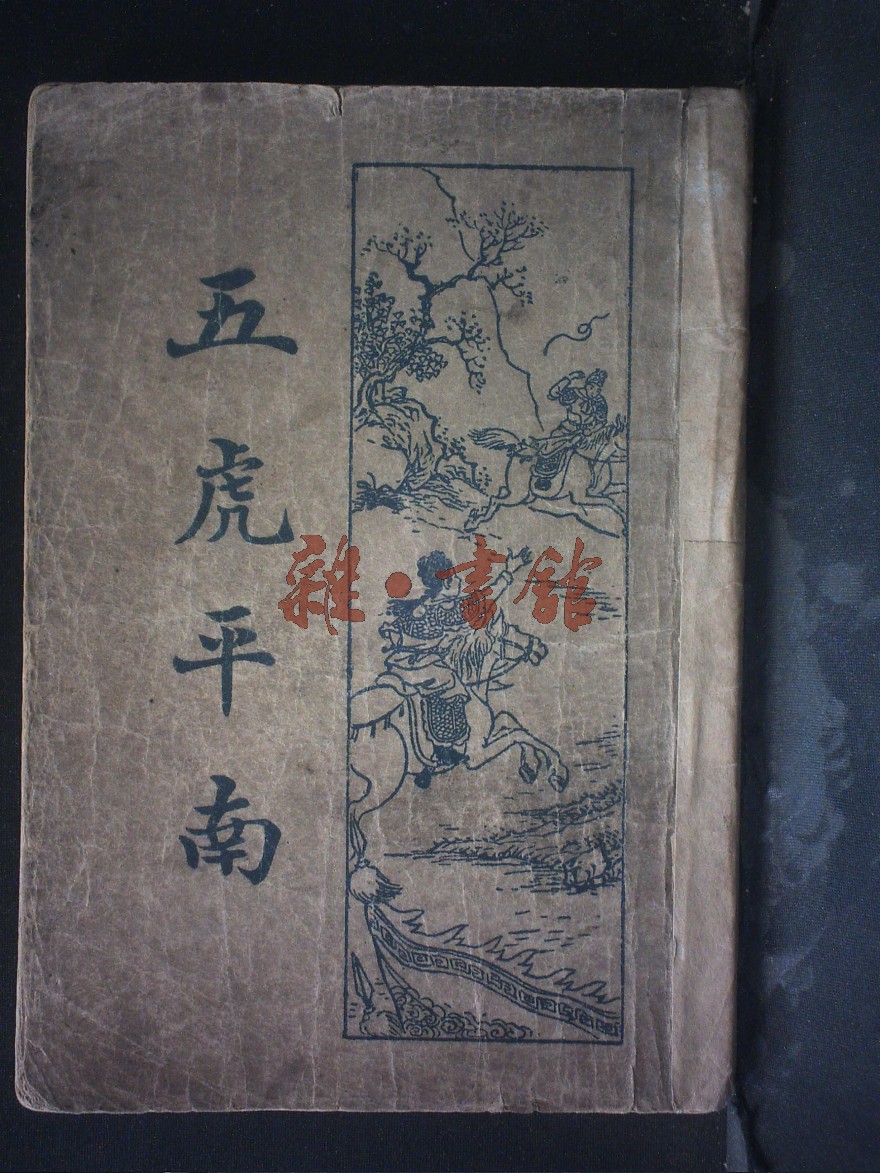 五虎平南
雜·書館